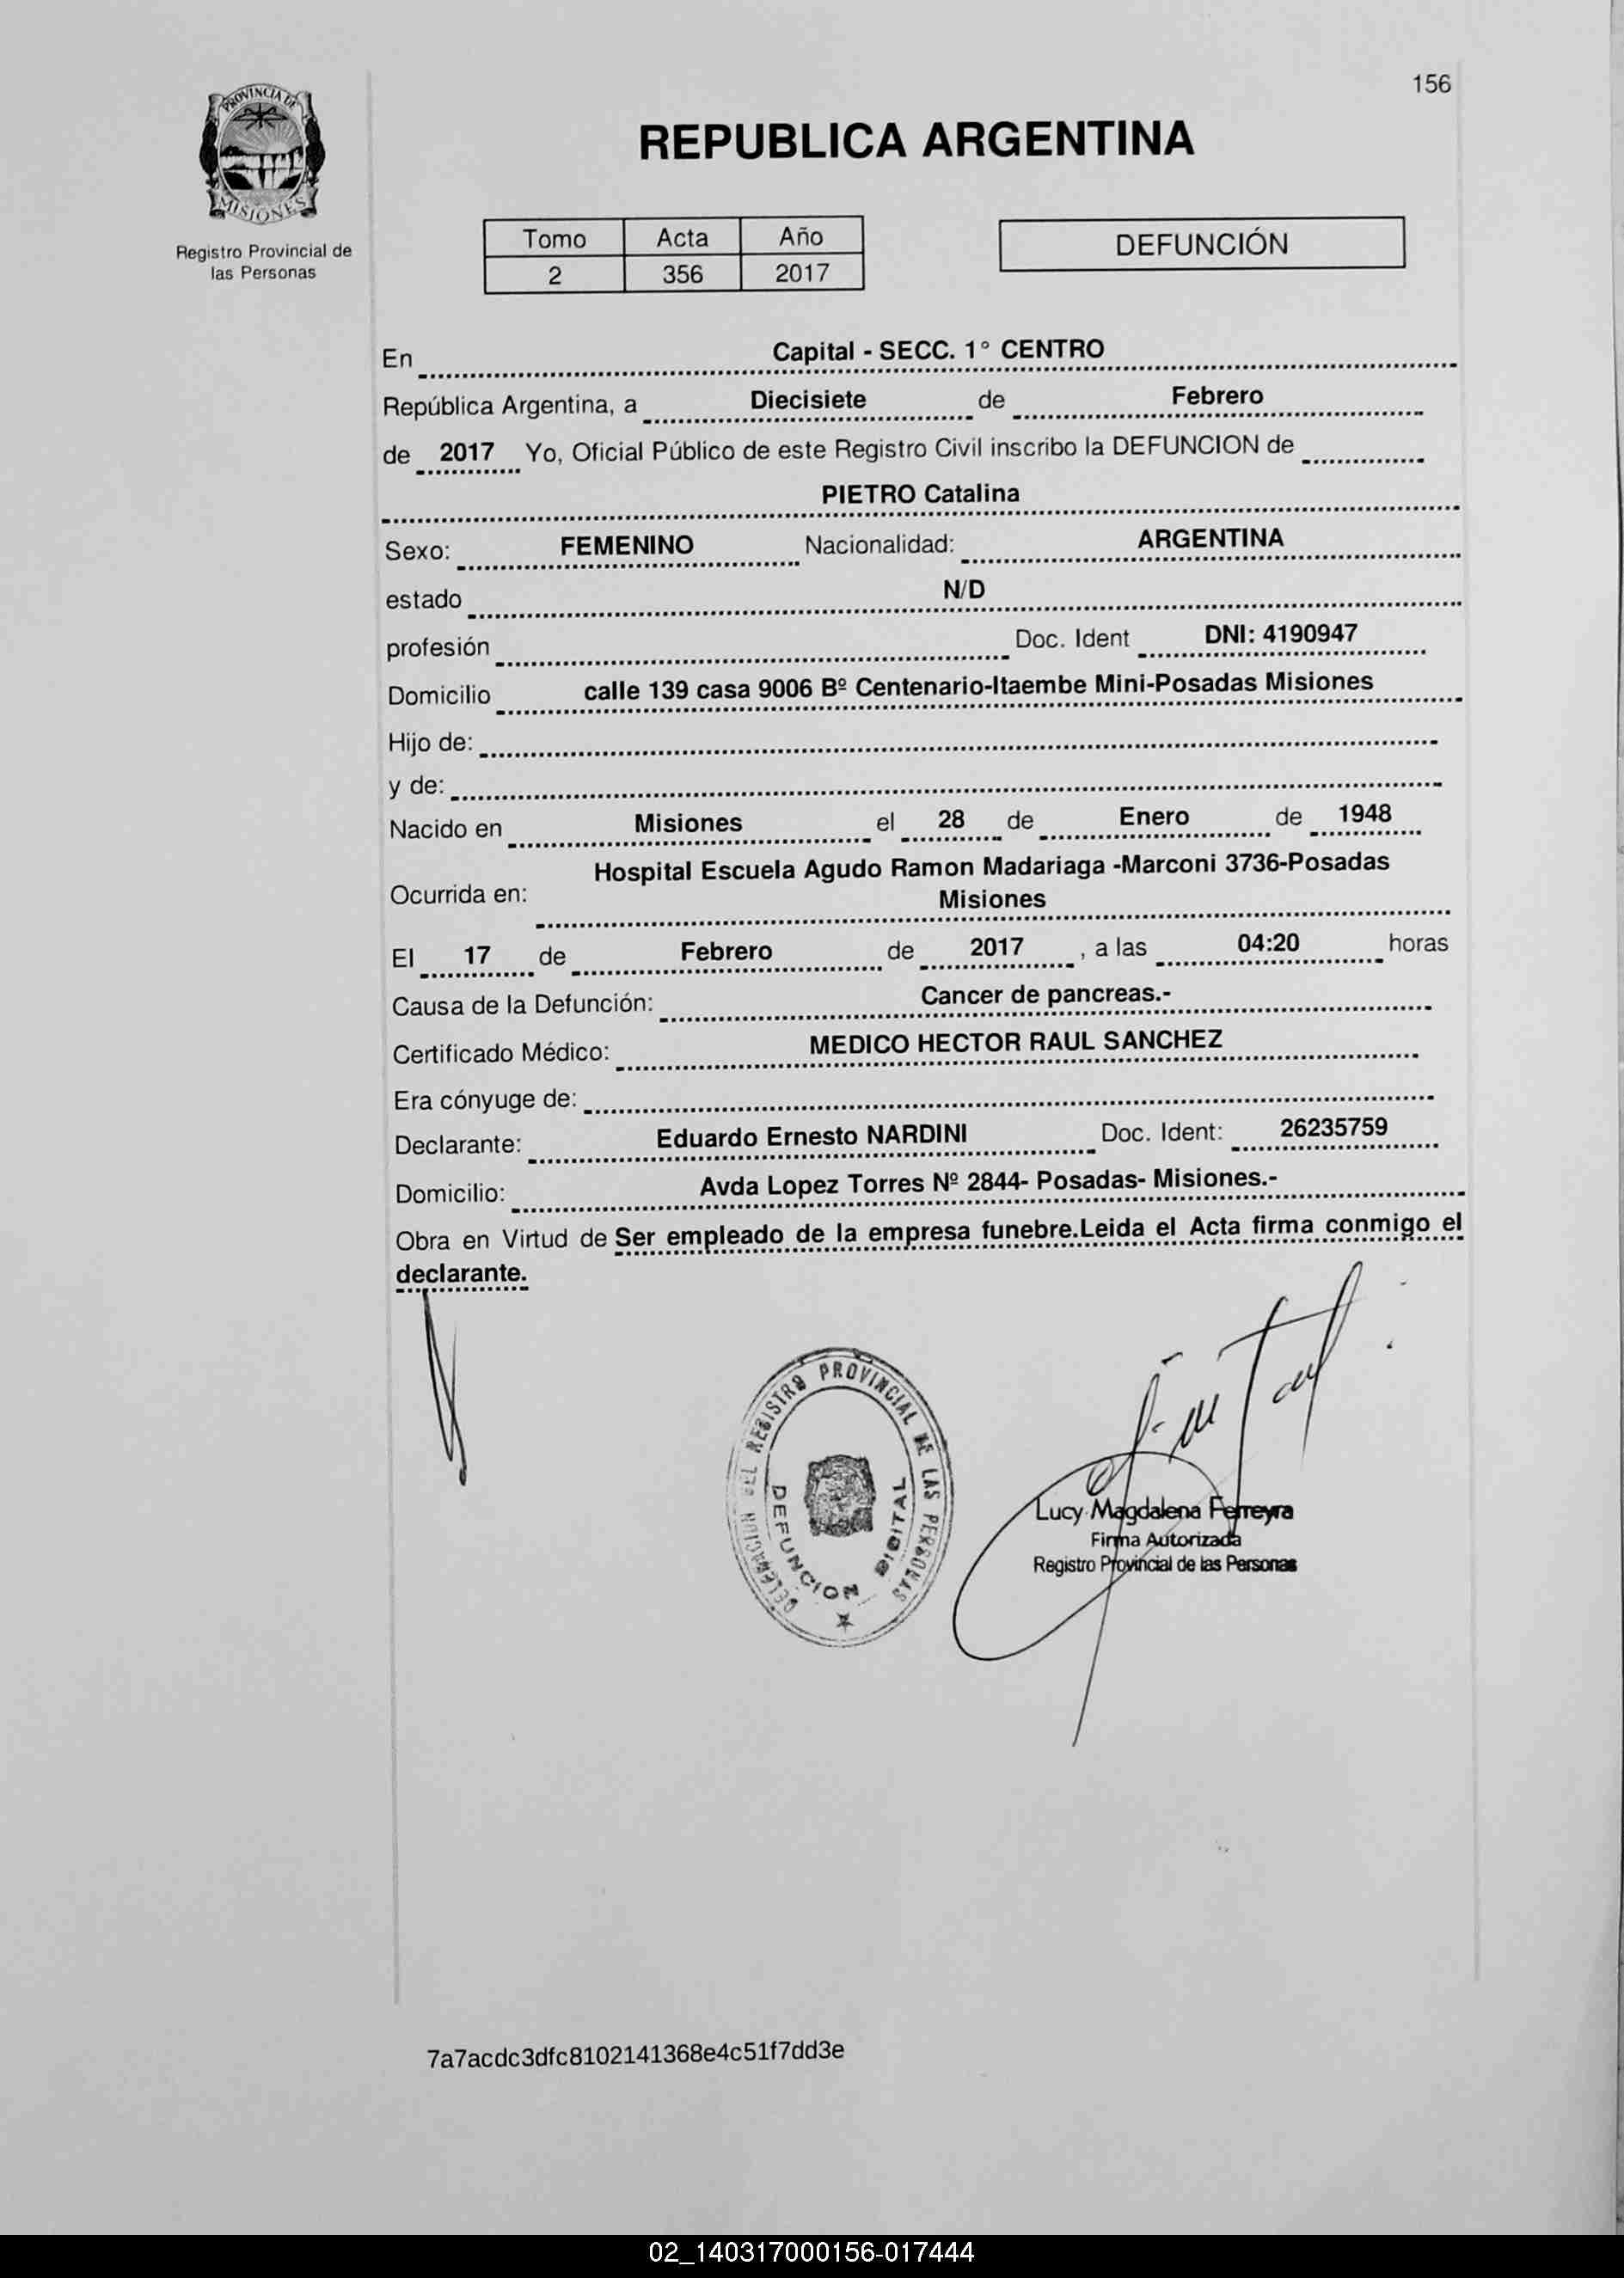 156
PROVINCIA DE
MISIONES
Registro Provincial de
las Personas
REPUBLICA ARGENTINA
Tomo Acta Año
2 356 2017
DEFUNCIÓN
En Capital - SECC. 1° CENTRO
República Argentina, a Diecisiete de Febrero
de 2017 Yo, Oficial Público de este Registro Civil inscribo la DEFUNCION de
PIETRO Catalina
Sexo: FEMENINO Nacionalidad: ARGENTINA
estado N/D
profesión Doc. Ident DNI: 4190947
Domicilio calle 139 casa 9006 Bº Centenario-Itaembe Mini-Posadas Misiones
Hijo de:
y de:
Nacido en Misiones el 28 de Enero de 1948
Hospital Escuela Agudo Ramon Madariaga -Marconi 3736-Posadas
Ocurrida en: Misiones
El 17 de Febrero de 2017 , a las 04:20 horas
Causa de la Defunción: Cancer de pancreas.-
Certificado Médico: MEDICO HECTOR RAUL SANCHEZ
Era cónyuge de:
Declarante: Eduardo Ernesto NARDINI Doc. Ident: 26235759
Domicilio: Avda Lopez Torres Nº 2844- Posadas- Misiones.-
Obra en Virtud de Ser empleado de la empresa funebre.Leida el Acta firma conmigo el
declarante.
DELEGACION DEL REGISTRO PROVINCIAL DE LAS PERSONAS
DEFUNCION DIGITAL
Lucy Magdalena Ferreyra
Firma Autorizada
Registro Provincial de las Personas
7a7acdc3dfc8102141368e4c51f7dd3e
02_140317000156-017444